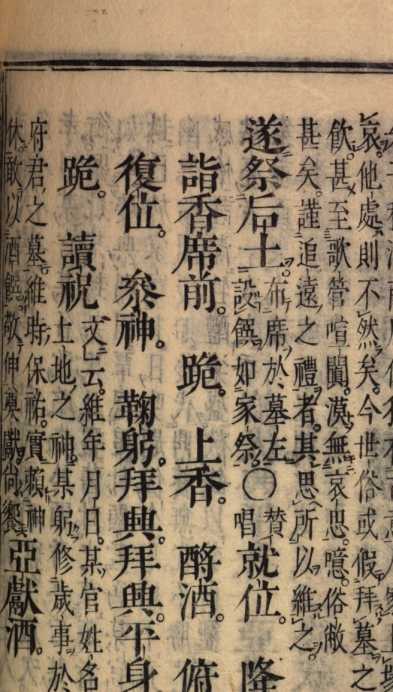 哀他處則不然矣今世俗或假拜墓之
飲甚至歌管喧闐漠無哀思噫俗敝
甚矣謹追遠之禮者其思所以維之
遂祭后土。布席於墓左
設饌如家祭。○贊
唱就位。降
詣香席前。跪。上香。酹酒。俯
復位。參神。鞠躬。拜。興。拜。興。平身
跪。讀祝文云維年月日某官姓名
土地之神某躬修歲事於
府君之墓維時保祐實賴神
休敢以酒饌敬伸奠獻尚饗亞獻酒。